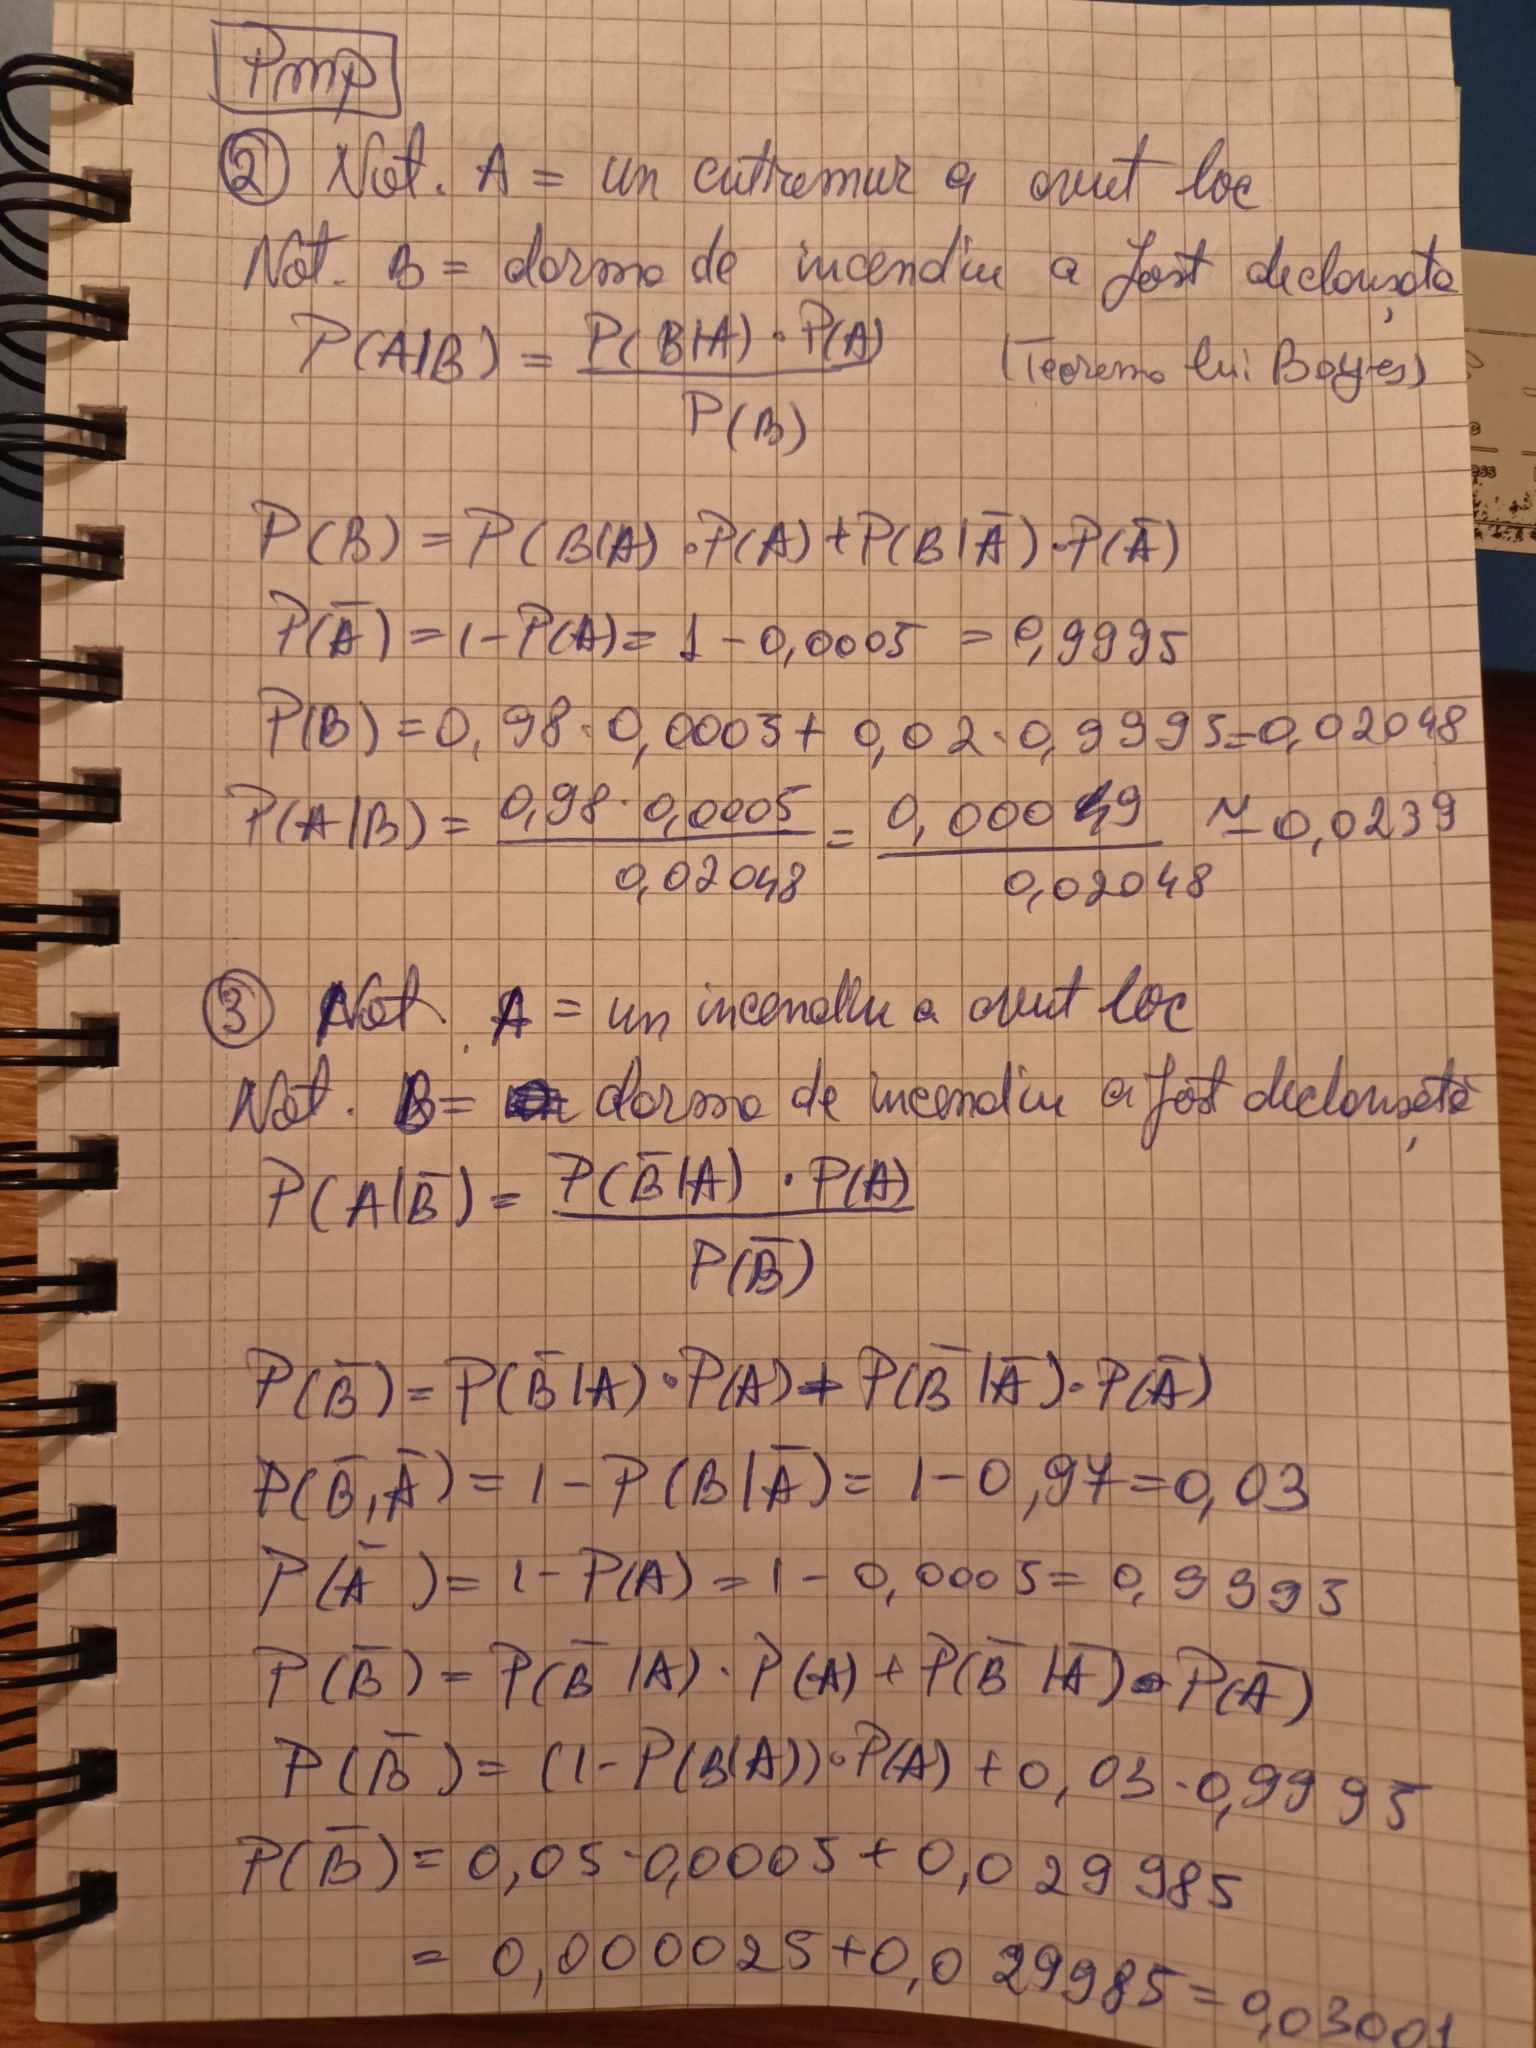 Pmp
② Not. A = un cutremur a avut loc
Not. B = alarma de incendiu a fost declanșata
P(A|B) = P(B|A) · P(A) / P(B) (Teorema lui Bayes)
P(B) = P(B|A) · P(A) + P(B|Ā) · P(Ā)
P(Ā) = 1 - P(A) = 1 - 0,0005 = 0,9995
P(B) = 0,98 · 0,0005 + 0,02 · 0,9995 = 0,02048
P(A|B) = 0,98 · 0,0005 / 0,02048 = 0,00049 / 0,02048 ≃ 0,0239
③ Not. A = un incendiu a avut loc
Not. B = alarma de incendiu a fost declanșată
P(A|B̄) = P(B̄|A) · P(A) / P(B̄)
P(B̄) = P(B̄|A) · P(A) + P(B̄|Ā) · P(Ā)
P(B̄,Ā) = 1 - P(B|Ā) = 1 - 0,97 = 0,03
P(Ā) = 1 - P(A) = 1 - 0,0005 = 0,9995
P(B̄) = P(B̄|A) · P(A) + P(B̄|Ā) · P(Ā)
P(B̄) = (1 - P(B|A)) · P(A) + 0,03 · 0,9995
P(B̄) = 0,05 · 0,0005 + 0,029985
= 0,000025 + 0,029985 = 0,03001